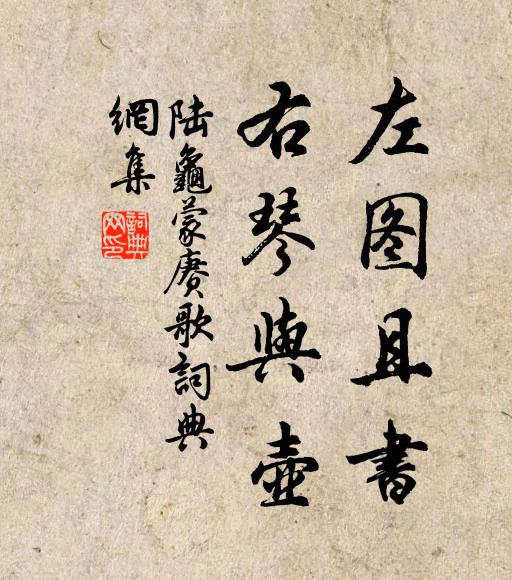 左图且書
右琴與壺
陸龜蒙賡歌詞典
網集
詞典网印